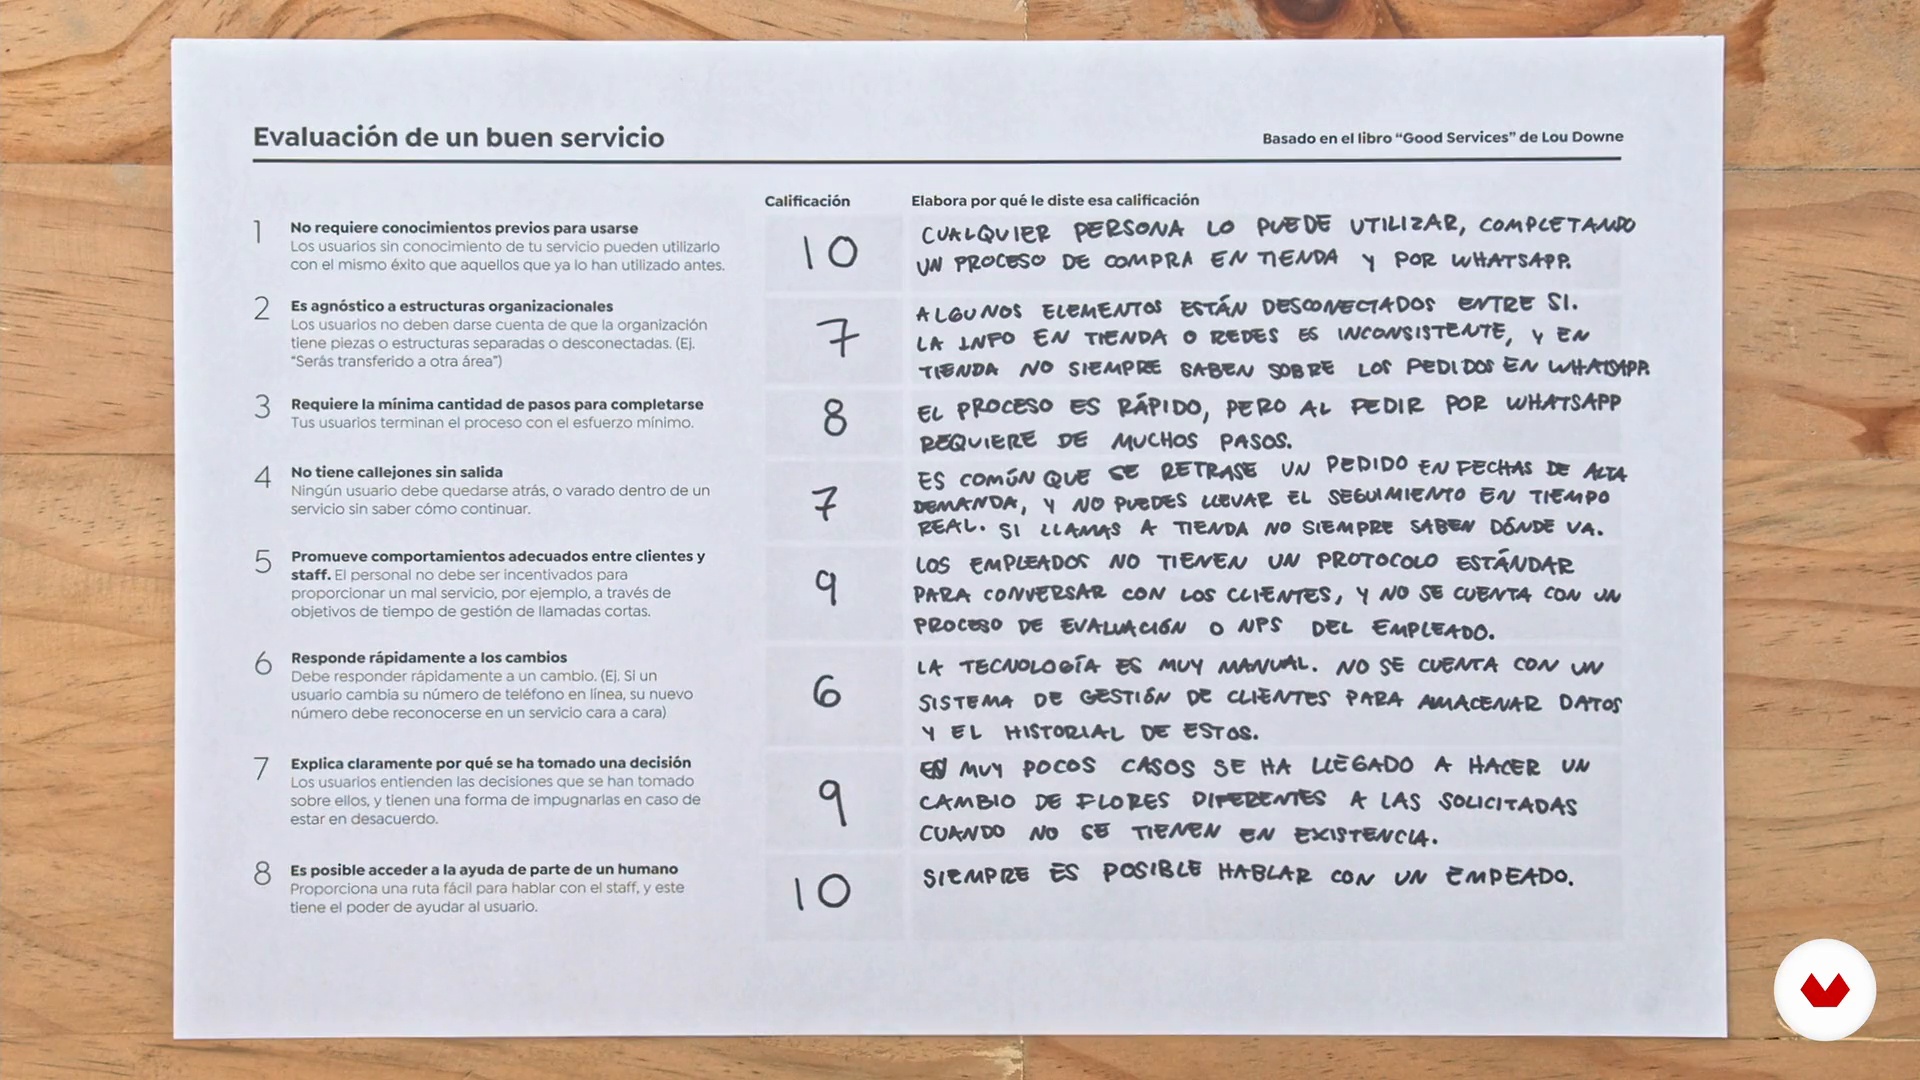 Evaluación de un buen servicio
Basado en el libro “Good Services” de Lou Downe
Calificación
Elabora por qué le diste esa calificación
1
No requiere conocimientos previos para usarse
Los usuarios sin conocimiento de tu servicio pueden utilizarlo
con el mismo éxito que aquellos que ya lo han utilizado antes.
10
CUALQUIER PERSONA LO PUEDE UTILIZAR, COMPLETANDO
UN PROCESO DE COMPRA EN TIENDA Y POR WHATSAPP.
2
Es agnóstico a estructuras organizacionales
Los usuarios no deben darse cuenta de que la organización
tiene piezas o estructuras separadas o desconectadas. (Ej.
“Serás transferido a otra área”)
7
ALGUNOS ELEMENTOS ESTÁN DESCONECTADOS ENTRE SI.
LA INFO EN TIENDA O REDES ES INCONSISTENTE, Y EN
TIENDA NO SIEMPRE SABEN SOBRE LOS PEDIDOS EN WHATSAPP.
3
Requiere la mínima cantidad de pasos para completarse
Tus usuarios terminan el proceso con el esfuerzo mínimo.
8
EL PROCESO ES RÁPIDO, PERO AL PEDIR POR WHATSAPP
REQUIERE DE MUCHOS PASOS.
4
No tiene callejones sin salida
Ningún usuario debe quedarse atrás, o varado dentro de un
servicio sin saber cómo continuar.
7
ES COMÚN QUE SE RETRASE UN PEDIDO EN FECHAS DE ALTA
DEMANDA, Y NO PUEDES LLEVAR EL SEGUIMIENTO EN TIEMPO
REAL. SI LLAMAS A TIENDA NO SIEMPRE SABEN DÓNDE VA.
5
Promueve comportamientos adecuados entre clientes y
staff. El personal no debe ser incentivados para
proporcionar un mal servicio, por ejemplo, a través de
objetivos de tiempo de gestión de llamadas cortas.
9
LOS EMPLEADOS NO TIENEN UN PROTOCOLO ESTÁNDAR
PARA CONVERSAR CON LOS CLIENTES, Y NO SE CUENTA CON UN
PROCESO DE EVALUACIÓN O NPS DEL EMPLEADO.
6
Responde rápidamente a los cambios
Debe responder rápidamente a un cambio. (Ej. Si un
usuario cambia su número de teléfono en línea, su nuevo
número debe reconocerse en un servicio cara a cara)
6
LA TECNOLOGÍA ES MUY MANUAL. NO SE CUENTA CON UN
SISTEMA DE GESTIÓN DE CLIENTES PARA AMACENAR DATOS
Y EL HISTORIAL DE ESTOS.
7
Explica claramente por qué se ha tomado una decisión
Los usuarios entienden las decisiones que se han tomado
sobre ellos, y tienen una forma de impugnarlas en caso de
estar en desacuerdo.
9
EN MUY POCOS CASOS SE HA LLEGADO A HACER UN
CAMBIO DE FLORES DIFERENTES A LAS SOLICITADAS
CUANDO NO SE TIENEN EN EXISTENCIA.
8
Es posible acceder a la ayuda de parte de un humano
Proporciona una ruta fácil para hablar con el staff, y este
tiene el poder de ayudar al usuario.
10
SIEMPRE ES POSIBLE HABLAR CON UN EMPEADO.